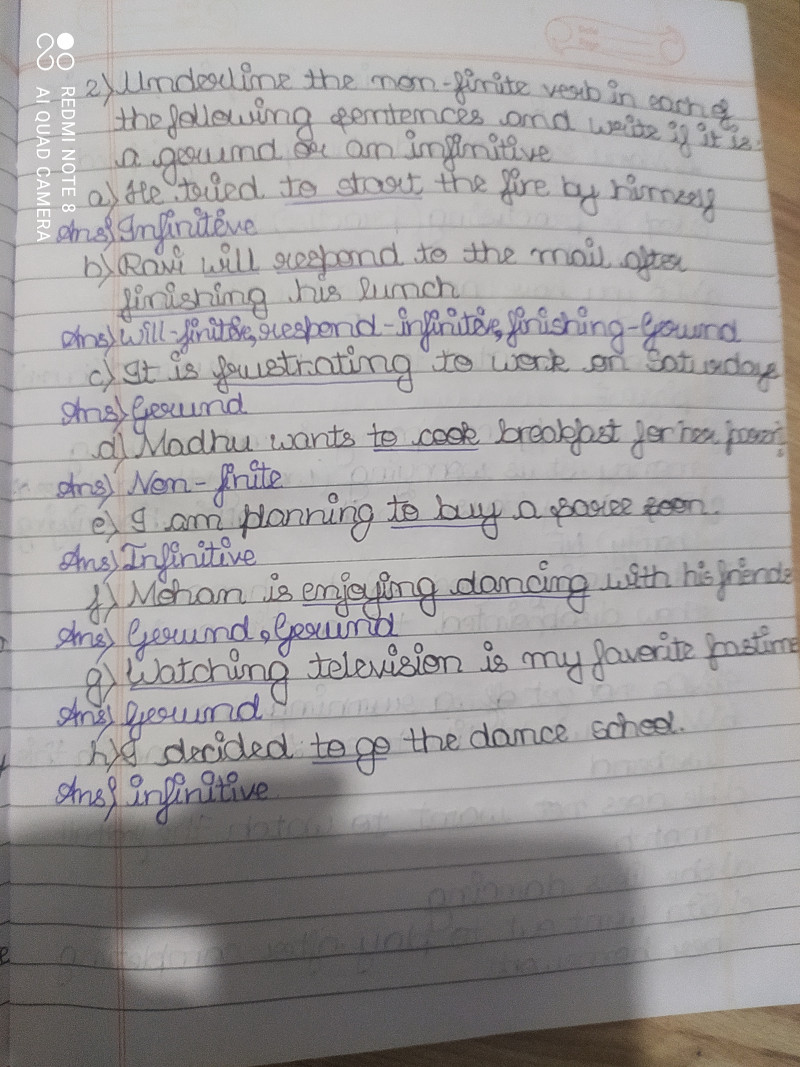 REDMI NOTE 8
AI QUAD CAMERA
2) Underline the non-finite verb in each of
the following sentences and write if it is
a gerund or an infinitive
a) He tried to start the fire by himself
Ans) Infinitive
b) Ravi will respond to the mail after
finishing his lunch
Ans) Will-finite, respond-infinitive, finishing-Gerund
c) It is frustrating to work on Saturdays
Ans) Gerund
d) Madhu wants to cook breakfast for her
Ans) Non-finite
e) I am planning to buy a soon.
Ans) Infinitive
f) Mohan is enjoying dancing with his friends
Ans) Gerund, Gerund
g) Watching television is my favorite pastime
Ans) Gerund
h) I decided to go the dance school.
Ans) infinitive